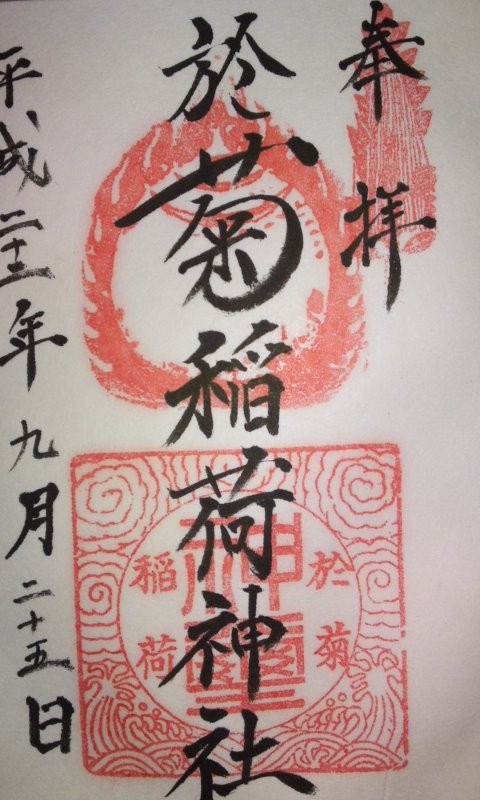 奉拝
於菊稲荷神社
平成二十二年九月二十五日
於菊
稲荷